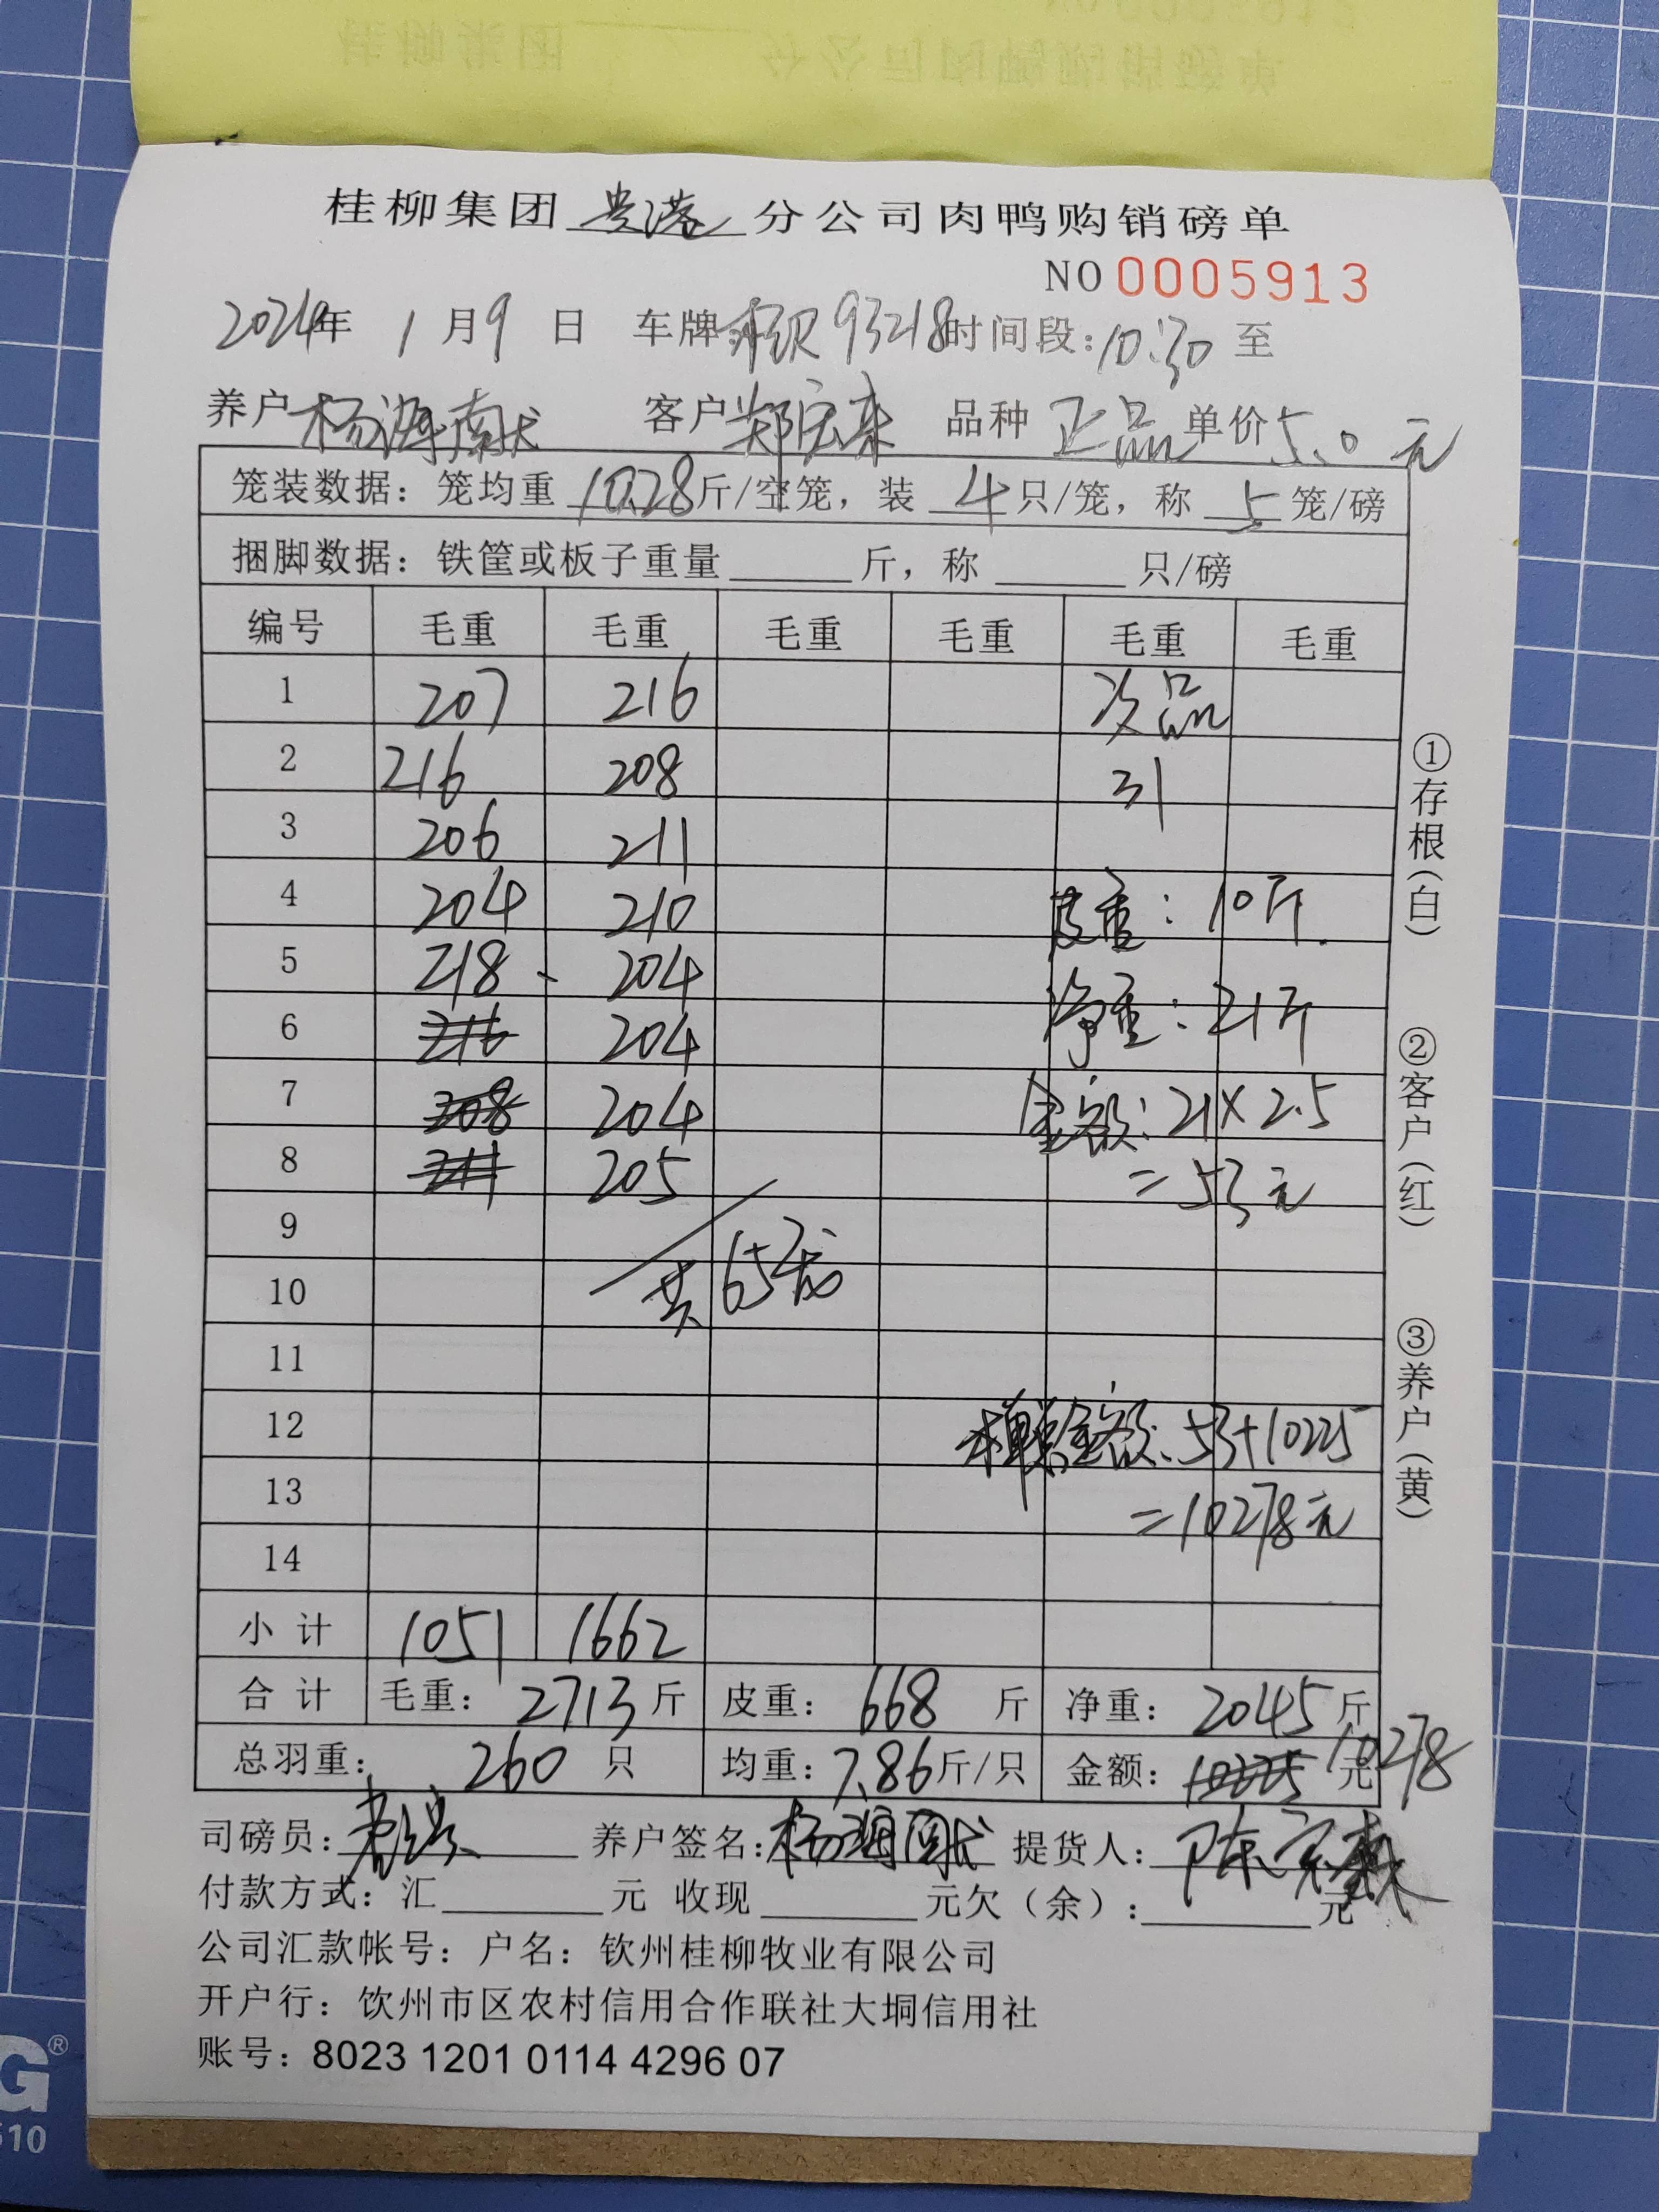 桂柳集团 贵港 分公司肉鸭购销磅单
NO 0005913
2024年 1 月 9 日 车牌: 93218 时间段: 10:30 至
养户 杨海南 客户 郑宏来 品种 正品 单价 5.0 元
笼装数据: 笼均重 10.28 斤/空笼, 装 4 只/笼, 称 5 笼/磅
捆脚数据: 铁筐或板子重量 斤, 称 只/磅
编号 毛重 毛重 毛重 毛重 毛重 毛重
1 207 216 次品
2 216 208 31
3 206 211
4 204 210 皮重: 10斤.
5 218 204 净重: 21斤
6 216 204
7 208 204 金额: 21×2.5
8 211 205 =53元
9
10 共65笼
11
12 总金额: 53+10225
13 =10278元
14
小 计 1051 1662
合 计 毛重: 2713 斤 皮重: 668 斤 净重: 2045 斤
总羽重: 260 只 均重: 7.86 斤/只 金额: 10225 元 10278
司磅员: 养户签名: 提货人:
付款方式: 汇 元 收现 元欠(余): 元
公司汇款帐号: 户名: 钦州桂柳牧业有限公司
开户行: 饮州市区农村信用合作联社大垌信用社
账号: 8023 1201 0114 4296 07
①存根(白)
②客户(红)
③养户(黄)
G®
510